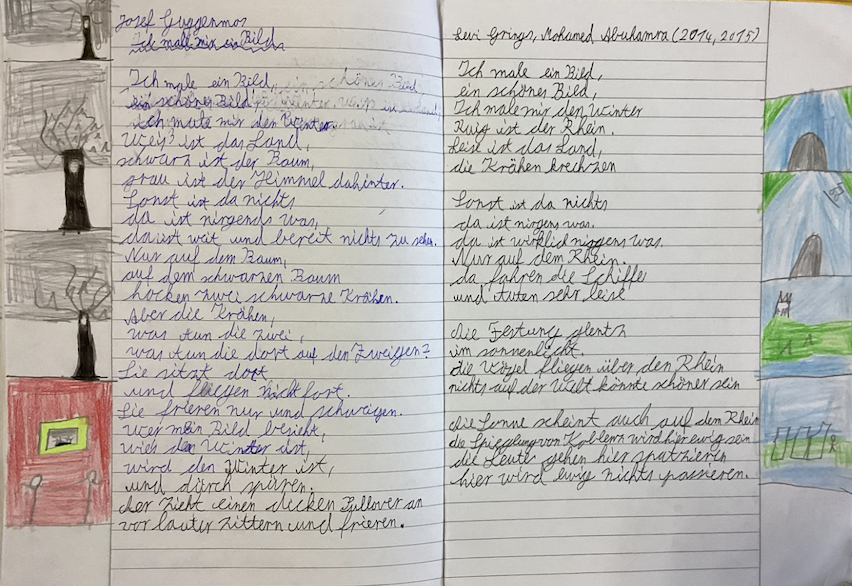 Josef Guggenmos
Ich male mir ein Bild
Ich male ein Bild,
ein schönes Bild
ich male mir den Winter
Weiß ist das Land,
schwarz ist der Baum,
grau ist der Himmel dahinter.
Sonst ist da nichts
da ist nirgends was,
da ist weit und bereit nichts zu sehen.
Nur auf dem Baum,
auf dem schwarzen Baum
hocken zwei schwarze Krähen.
Aber die Krähen,
was tun die zwei,
was tun die dort auf den Zweigen?
Sie sitzt dort,
und fliegen nicht fort.
Sie frieren nur und schweigen.
wer mein Bild besieht,
wies den Winter ist,
wird den Winter ist,
und dürch spüren.
der zieht einen dicken Pullover an
vor lauter zittern und frieren.
Levi Grings, Mohamed Abuhamra (2014, 2015)
Ich male ein Bild,
ein schönes Bild,
Ich male mir den Winter
Ruig ist der Rhein.
Leise ist das Land,
die Krähen krechzen
Sonst ist da nichts
da ist nirgens was.
da ist wirklich nirgens was.
Nur auf dem Rhein.
da fahren die Schiffe
und tuten sehr leise
die Festung glentz
im sonnenlicht.
die Vögel fliegen über den Rhein
nichts auf der Welt könnte schöner sein
die Sonne scheint auch auf dem Rhein
die Spiegelung von Koblenz wird hier ewig sein
die Leute gehen hier spatzieren
hier wird ewig nichts passieren.